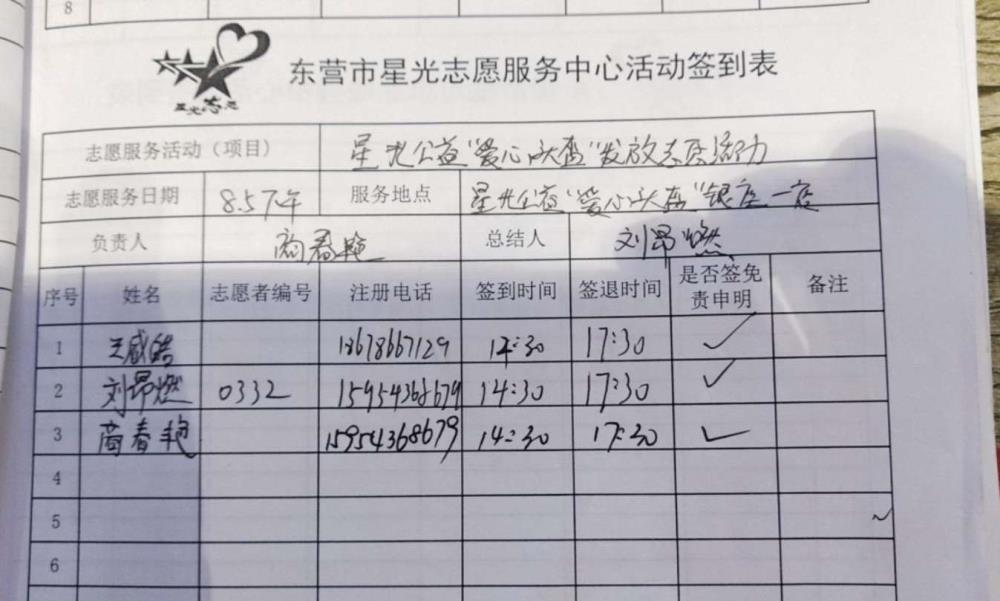 8
星光志愿
东营市星光志愿服务中心活动签到表
志愿服务活动（项目） 星光公益“爱心头盔”发放志愿活动
志愿服务日期 8.5下午 服务地点 星光公益“爱心头盔”银座一店
负责人 商春艳 总结人 刘昂燃
序号 姓名 志愿者编号 注册电话 签到时间 签退时间 是否签免责申明 备注
1 王威皓 13678667129 14:30 17:30 ✓
2 刘昂燃 0332 15954368679 14:30 17:30 ✓
3 商春艳 15954368679 14:30 17:30 ✓
4
5
6